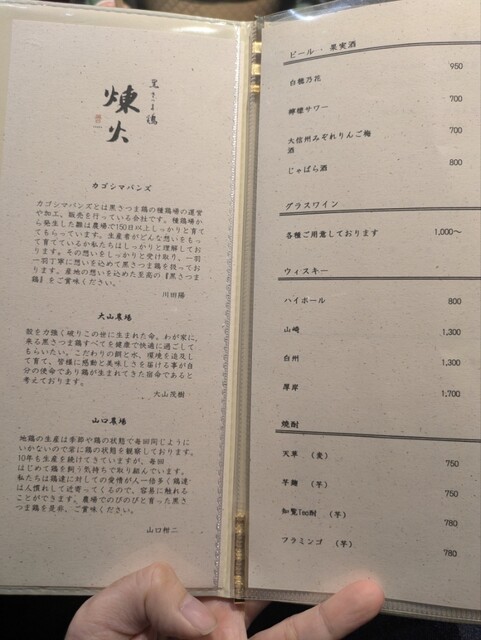 黒さつま鶏
煉火
カゴシマバンズ
カゴシマバンズとは黒さつま鶏の種鶏場の運営
や加工、販売を行っている会社です。種鶏場か
ら発生した雛は農場で150日以上しっかりと育て
てもらっています。生産者がどんな想いをもっ
て育てているか私たちはしっかりと理解してお
ります。その想いをしっかりと受け取り、一羽
一羽丁寧に想いを込めて黒さつま鶏を捌ってお
ります。産地の想いを込めた至高の『黒さつま
鶏』をご賞味ください。
川田陽
大山農場
殻を力強く破りこの世に生まれた命。わが家に
来る黒さつま鶏すべてを健康で快適に過ごして
もらいたい。こだわりの餌と水、環境を追及し
て育て、皆様に感動と美味しさを届ける事が自
分の使命であり鶏が生まれてきた宿命であると
考えております。
大山茂樹
山口農場
地鶏の生産は季節や鶏の状態で毎回同じように
いかないので常に鶏の状態を観察しております。
10年も生産を続けてきていますが、毎回
はじめて鶏を飼う気持ちで取り組んでいます。
私たちは鶏達に対しての愛情が人一倍多く鶏達
は人慣れして近寄ってくるので、容易に触れる
ことができます。農場でのびのびと育った黒さ
つま鶏を是非、ご賞味ください。
山口樹二
ビール・果実酒
白穂乃花 950
檸檬サワー 700
大信州みぞれりんご梅酒 700
じゃばら酒 800
グラスワイン
各種ご用意しております 1,000～
ウィスキー
ハイボール 800
山崎 1,300
白州 1,300
厚岸 1,700
焼酎
天草 （麦） 750
芋麹 （芋） 750
知覧Tea酎 （芋） 780
フラミンゴ （芋） 780